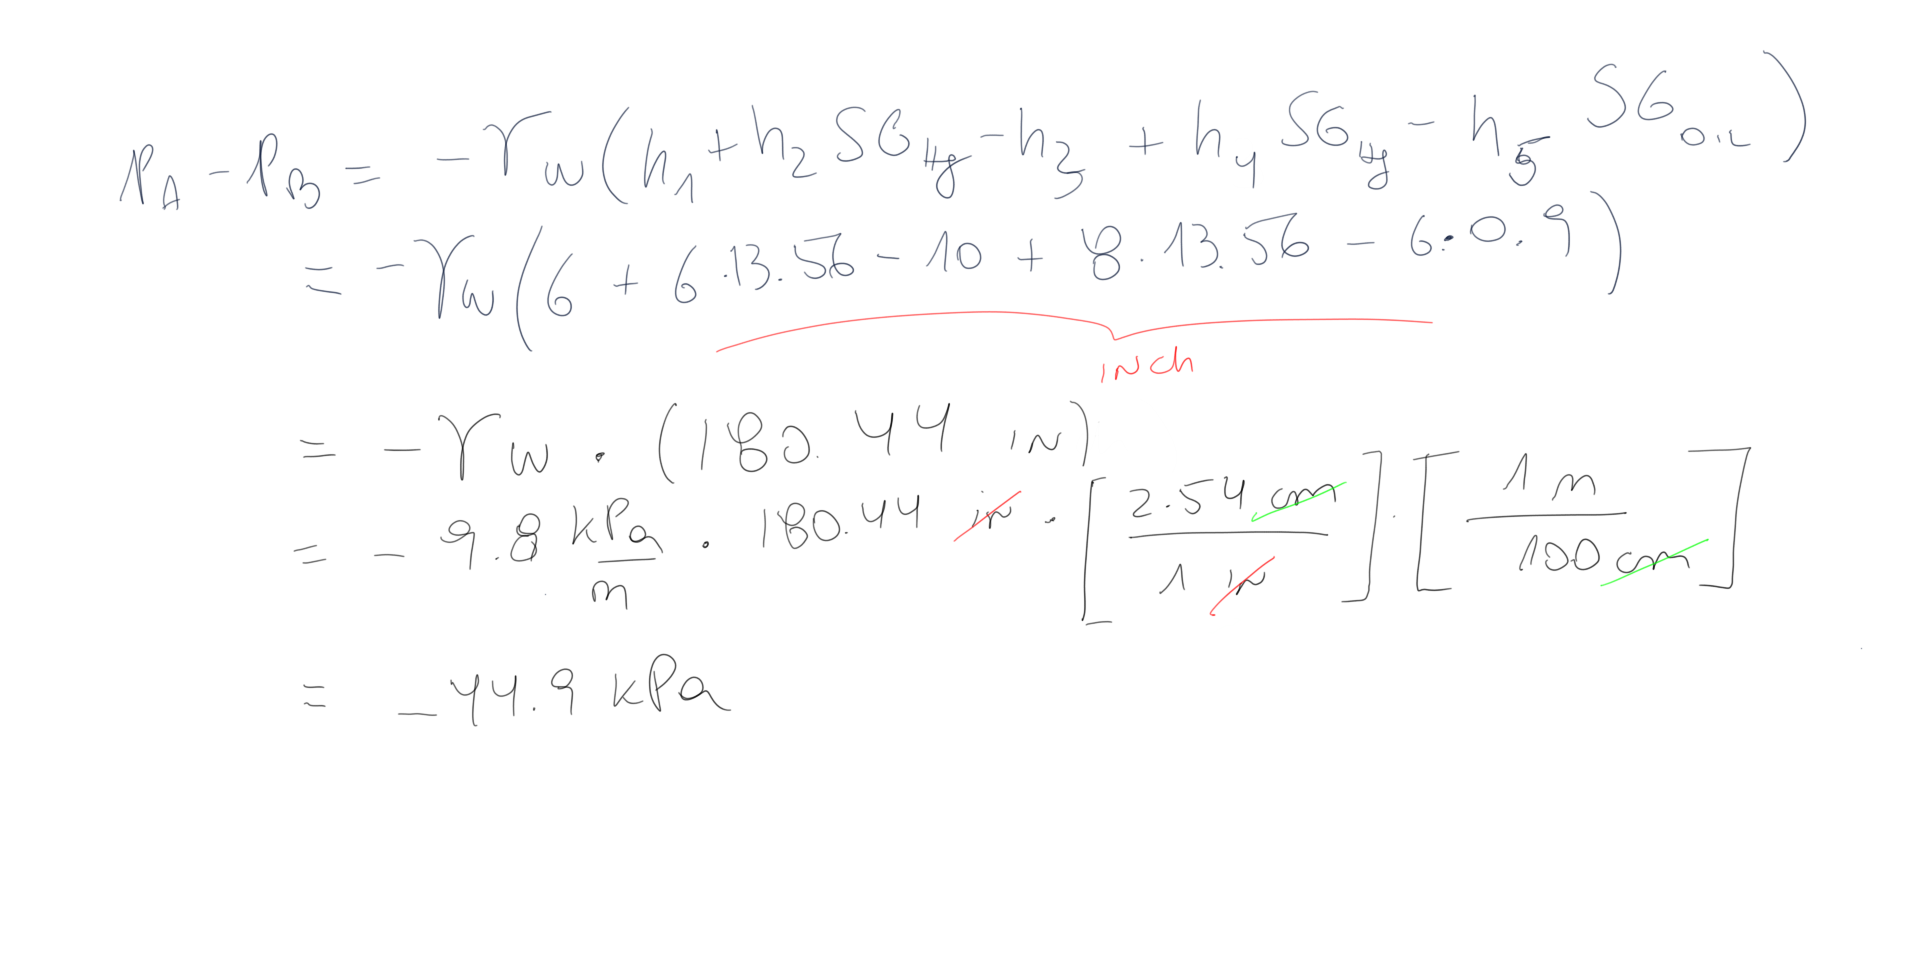 pA - pB = -γw(h1 + h2 SGHg - h3 + h4 SGHg - h5 SGOIL)
= -γw(6 + 6·13.56 - 10 + 8·13.56 - 6·0.9)
INCh
= -γw · (180.44 IN)
= - 9.8 kPa/m · 180.44 in · [2.54 cm / 1 in] · [1 m / 100 cm]
= -44.9 kPa